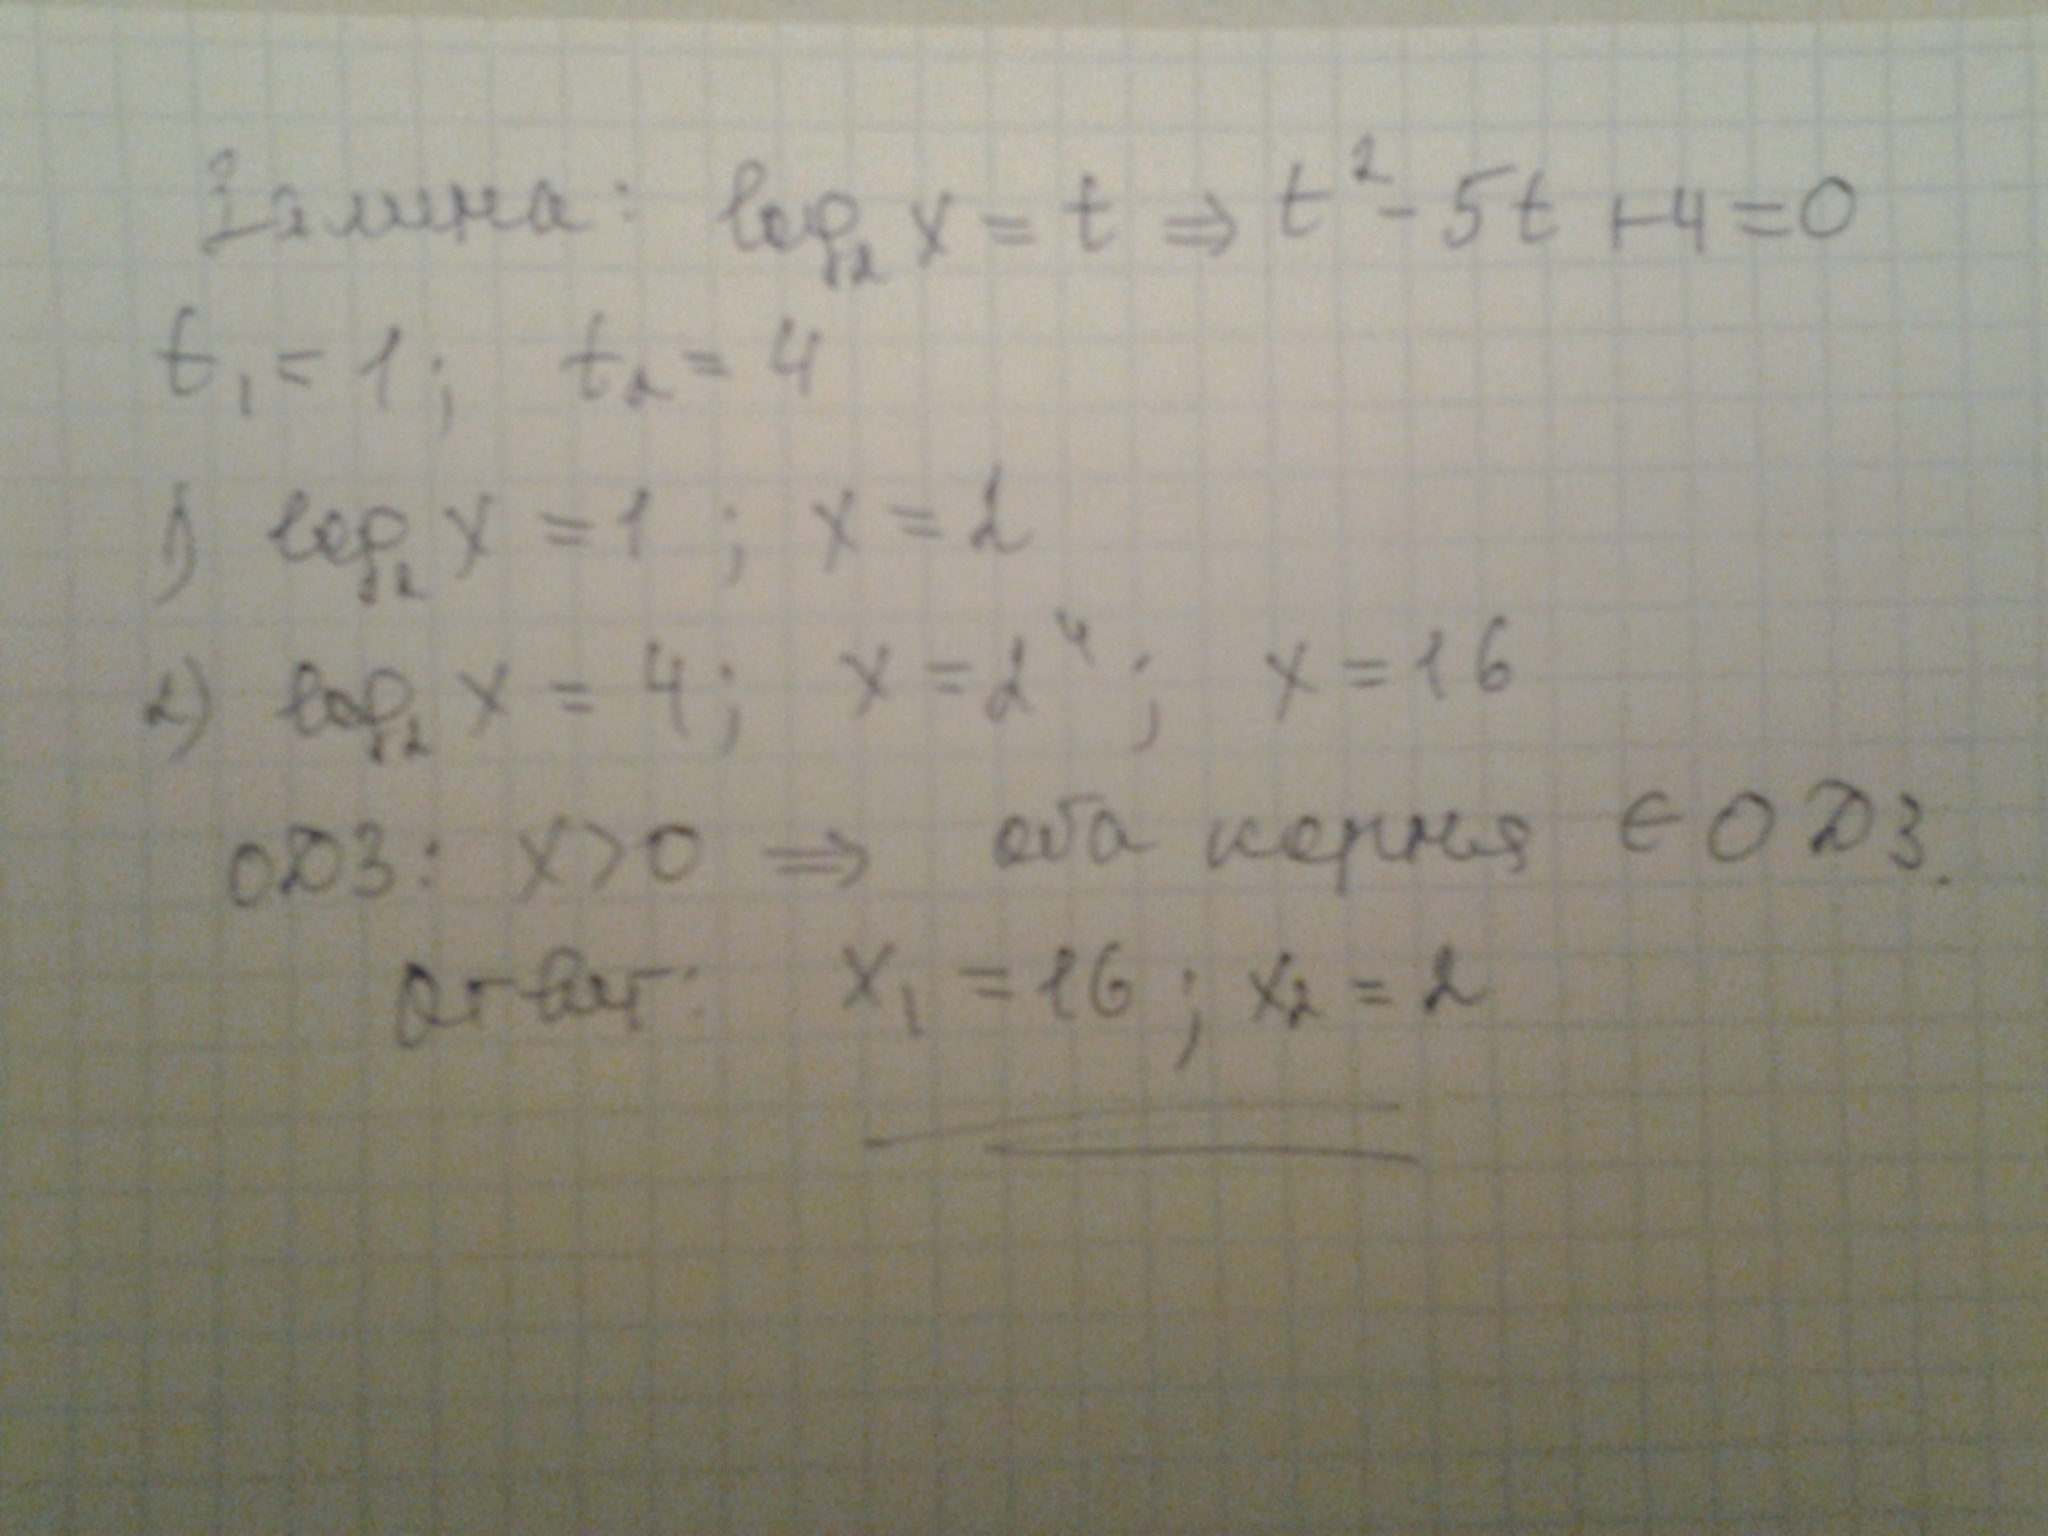 Замена: log₂ x = t ⇒ t² - 5t + 4 = 0
t₁ = 1; t₂ = 4
1) log₂ x = 1; x = 2
2) log₂ x = 4; x = 2⁴; x = 16
ОДЗ: x > 0 ⇒ оба корня ∈ ОДЗ.
Ответ: x₁ = 16; x₂ = 2